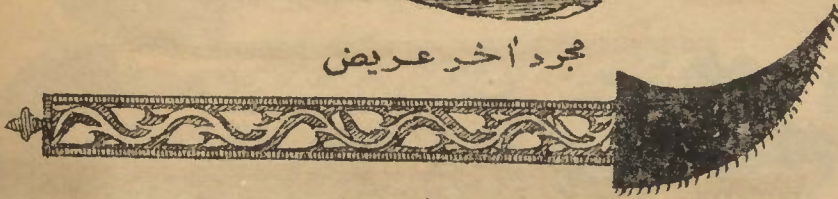 مجرد أخر عريض